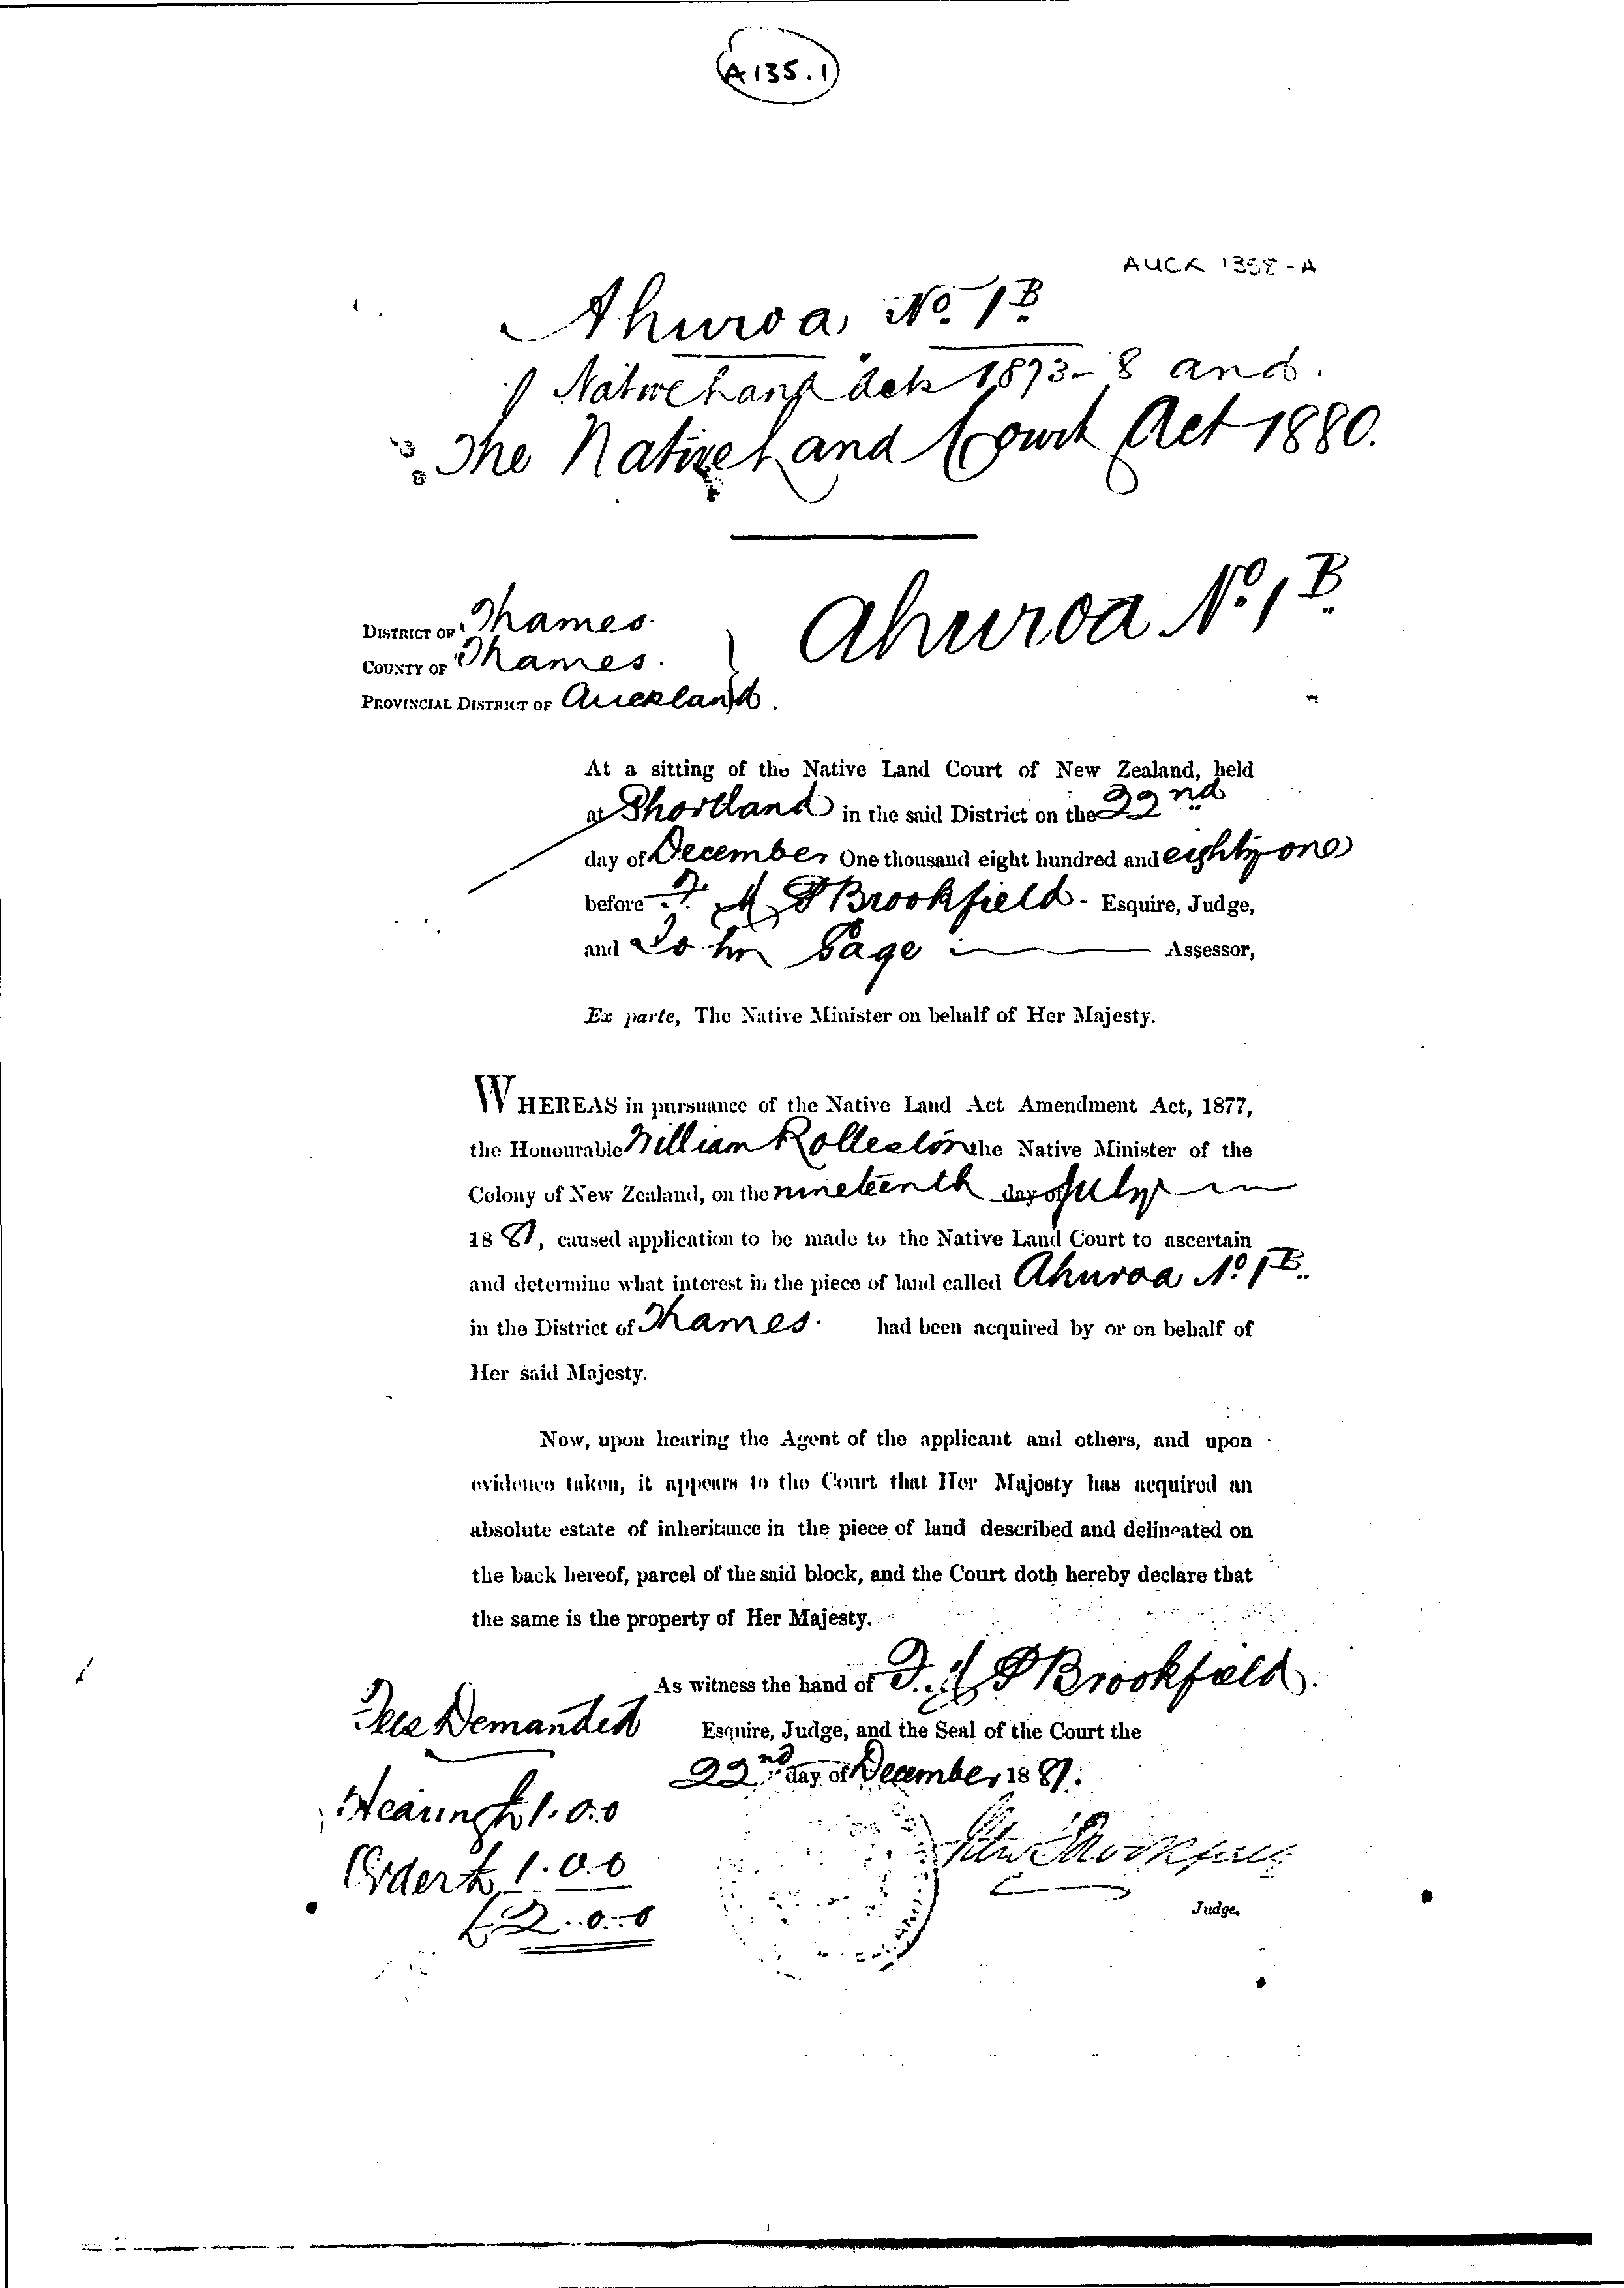 A135.1
AUCK 1358-A
Ahuroa, No. 1B
Native Land Acts 1873-8 and
The Native Land Court Act 1880.
DISTRICT OF Thames.
COUNTY OF Thames.
PROVINCIAL DISTRICT OF Auckland.
Ahuroa No. 1B.
At a sitting of the Native Land Court of New Zealand, held
at Shortland in the said District on the 22nd
day of December One thousand eight hundred and eighty one
before F. M. P Brookfield - Esquire, Judge,
and John Page Assessor,
Ex parte, The Native Minister on behalf of Her Majesty.
WHEREAS in pursuance of the Native Land Act Amendment Act, 1877,
the Honourable William Rolleston the Native Minister of the
Colony of New Zealand, on the nineteenth day of July
1881, caused application to be made to the Native Land Court to ascertain
and determine what interest in the piece of land called Ahuroa No. 1B.
in the District of Thames. had been acquired by or on behalf of
Her said Majesty.
Now, upon hearing the Agent of the applicant and others, and upon
evidence taken, it appears to the Court that Her Majesty has acquired an
absolute estate of inheritance in the piece of land described and delineated on
the back hereof, parcel of the said block, and the Court doth hereby declare that
the same is the property of Her Majesty.
As witness the hand of F. M P Brookfield.
Esquire, Judge, and the Seal of the Court the
22nd day of December 1881.
Judge.
Fees Demanded
Hearing £1.0.0
Order £1.0.0
£2.0.0